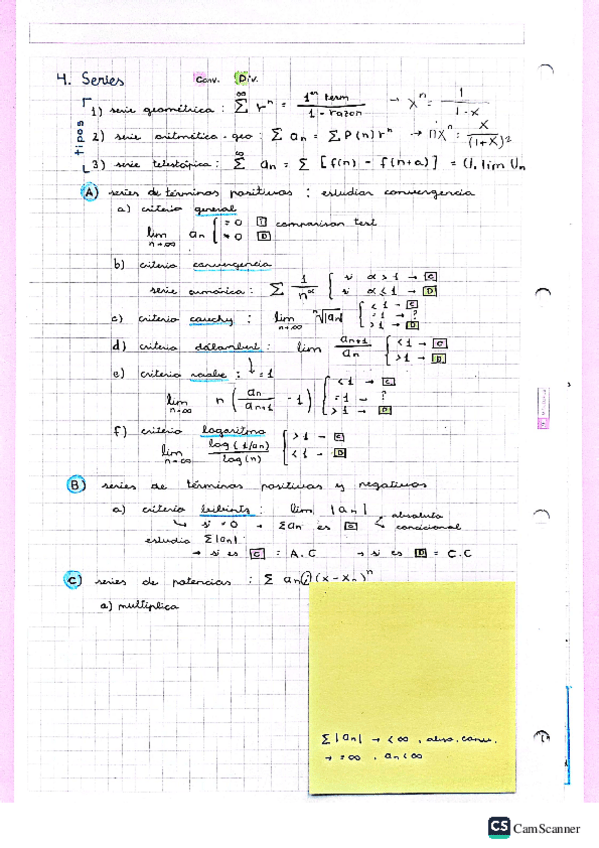 4. Series Conv. Div.
tipos
1) serie geométrica : ∞ Σ rⁿ = 1er term / 1 - razon → xⁿ = 1 / 1 - x
2) serie aritmética - geo : Σ an = Σ P(n) rⁿ → nxⁿ = x / (1+x)²
3) serie telestópica : ∞ Σ an = Σ [f(n) - f(n+a)] = U, lim Un
A) series de términos positivos : estudiar convergencia
a) criterio general
lim n→∞ an { = 0 C comparison test
≠ 0 D
b) criterio convergencia
serie armónica : Σ 1/n^α { si α > 1 → C
si α ≤ 1 → D
c) criterio cauchy : lim n→∞ ⁿ√|an| { < 1 - C
= 1 → ?
> 1 → D
d) criterio dálambert : lim an+1 / an { < 1 → C
> 1 → D
e) criterio raabe : ↓ = 1
lim n→∞ n ( an / an+1 - 1 ) { < 1 → C
= 1 - ?
> 1 → D
f) criterio logaritmo
lim n→∞ log(1/an) / log(n) { > 1 - C
< 1 - D
B) series de términos positivos y negativos
a) criterio leibnitz : lim |an|
↳ si = 0 → Σan es C < absoluta
condicional
estudia Σ|an| :
→ si es C = A.C → si es D = C.C
C) series de potencias : Σ an (x - xn)ⁿ
a) multiplica
Σ|an| → < ∞ . abso. conv.
→ = ∞ . an < ∞
CS CamScanner